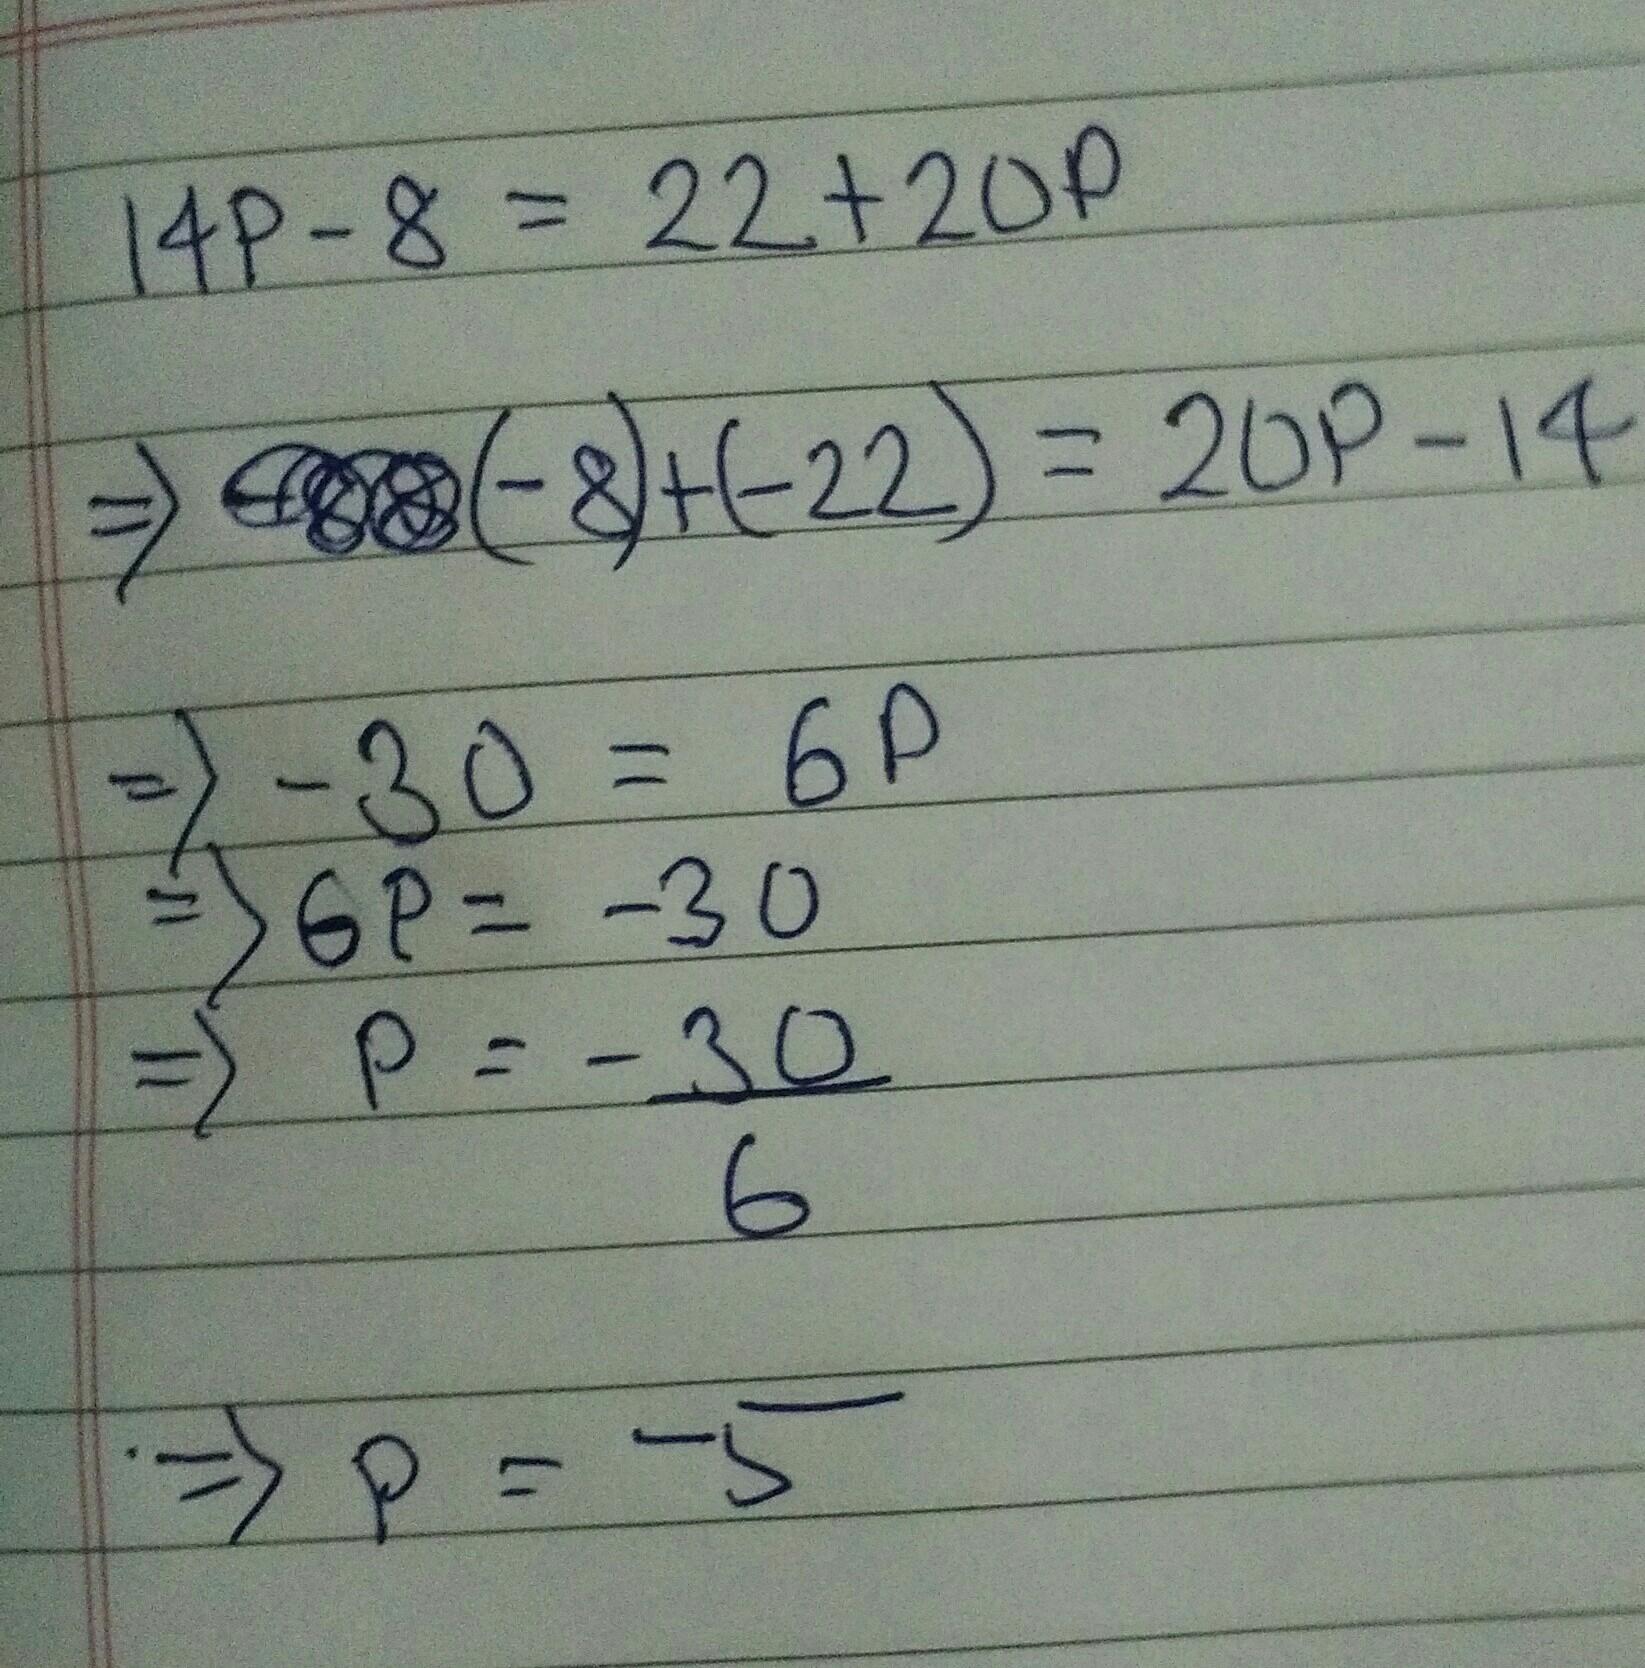 14P - 8 = 22 + 20P
=> (-8) + (-22) = 20P - 14
=> -30 = 6P
=> 6P = -30
=> P = -30
6
=> P = -5